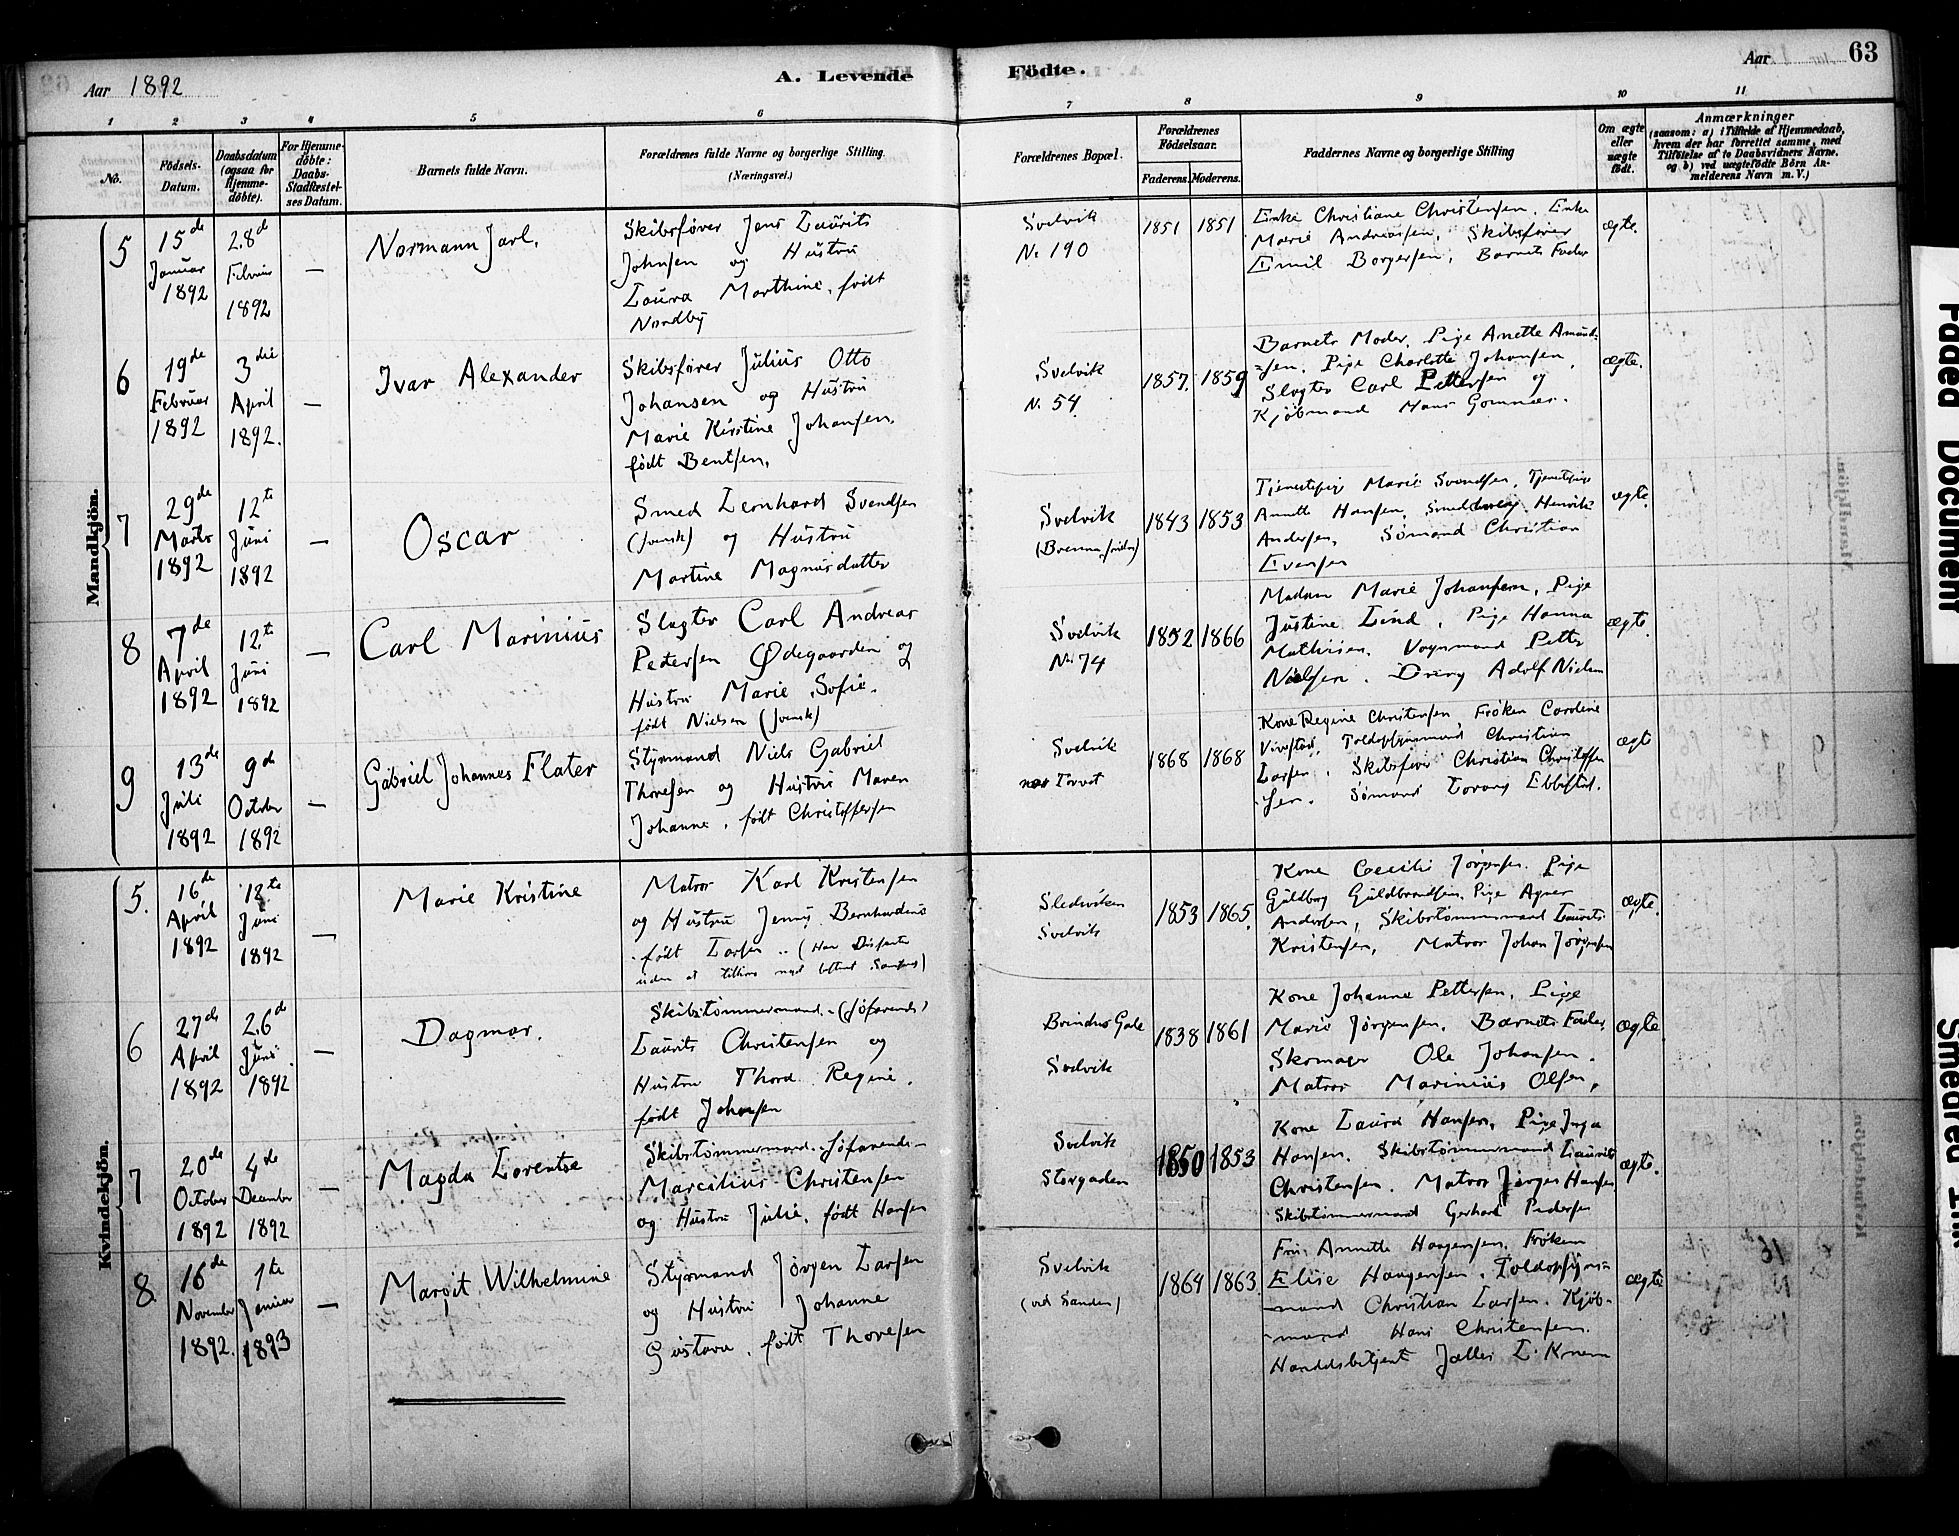 Aar 1892
A. Levende
Fødte.
Aar
63
1
2
3
4
5
6
7
8
9
10
11
No.
Fødsels-
Datum.
Daabsdatum
(ogsaa for
Hjemme-
døbte).
For Hjemme-
døbte:
Daabs-
Stadfæstel-
ses Datum.
Barnets fulde Navn.
Forældrenes fulde Navne og borgerlige Stilling.
(Næringsvei.)
Forældrenes Bopæl.
Forældrenes
Fødselsaar.
Faderens.
Moderens.
Faddernes Navne og borgerlige Stilling
Om ægte
eller
uægte
født.
Anmærkninger
(saasom: a) i Tilfælde af Hjemmedaab,
hvem der har forrettet samme, med
Tilføielse af to Daabsvidners Navne.
og b) ved uægtefødte Börn An-
melderens Navn m. V.)
Mandkjön.
5
15de
Januar
1892
28d
Februar
1892
—
Normann Jarl.
Skibsfører Jens Laurits
Johnsen og Hustru
Laura Marthine, født
Nordby
Svelvik
No 190
1851
1851
Enke Christiane Christensen, Enke
Marie Andreassen, Skibsfører
Emil Borgersen, Barnets Fader
ægte.
6
19de
Februar
1892
3die
April
1892.
—
Ivar Alexander
Skibsfører Julius Otto
Johansen og Hustru
Marie Kirstine Johansen,
født Bentsen,
Svelvik
N. 54
1857.
1859
Barnets Moder, Pige Anette Amund-
sen, Pige Charlotte Johansen,
Slagter Carl Pettersen og
Kjøbmand Hans Gommæs.
ægte.
7
29de
Marts
1892
12te
Juni
1892
—
Oscar
Smed Leonhard Svendsen
(svensk) og Hustru
Martine Magnusdatter
Svelvik
1843
1853
Tjenestepige Marie Svendsen, Tjenestepige
Annette Hansen, Henrik
Andersen, Sømand Christian
Evensen
ægte.
8
7de
April
1892
12te
Juni
1892
—
Carl Marinius
Slagter Carl Andreas
Petersen Ødegaarden og
Hustru Marie Sofie.
født Nielsen (svensk)
Svelvik
No 74
1852
1866
Madam Marie Johansen, Pige
Justine Lind, Pige Hanna
Mathisen. Vognmand Petter
Nielsen. Dreng Adolf Nielsen
ægte.
9
13de
Juli
1892
9de
October
1892
—
Gabriel Johannes Flater
Styrmand Niels Gabriel
Thoresen og Hustru Maren
Johanne, født Christoffersen
Svelvik
1868
1868
Kone Regine Christensen, Frøken Caroline
Toldopsynsmand Christian
Larsen, Skibsfører Christian Christoffer-
sen. Sømand Ebbestad.
ægte
Kvindekjön.
5.
16de
April
1892
12te
Juni
1892
—
Marie Kristine
Matros Karl Kristensen
og Hustru Jenny Bernhardine
født Larsen (Han Dissenter
Svelvik
1853
1865.
Kone Cecilie Jørgensen. Pige
Guldborg Guldbrandsen, Pige Agnes
Andersen, Skibstømmermand Laurits
Kristensen, Matros Johan Jørgensen
ægte.
6
27de
April
1892
26de
Juni
1892
—
Dagmar.
Skibstømmermand (søfarende)
Laurits Christensen og
Hustru Thora Regine,
født Johansen
Svelvik
1838
1861
Kone Johanne Pettersen, Pige
Marie Jørgensen, Barnets Fader,
Skomager Ole Johansen.
Matros Marinius Olsen,
ægte
7
20de
October
1892
4de
December
1892
—
Magda Lorentze
Skibstømmermand Søfarende
Marcelius Christensen
og Hustru Julie, født Hansen
Svelvik
Storgaden
1850
1853
Kone Laura Hansen, Pige Inga
Hansen. Skibstømmermand Laurits
Christensen. Matros Jørgen Hansen
Skibstømmermand Gerhard Pedersen
ægte.
8.
16de
November
1892.
1te
Januar
1893
—
Margit Wilhelmine
Styrmand Jørgen Larsen
og Hustru Johanne
Gustava, født Thoresen
Svelvik
(ved Sanden)
1864
1863
Fru Annette Haagensen, Frøken
Elise Haagensen, Toldopsyns-
mand Christian Larsen. Kjøb-
mand Hans Christensen.
Handelsbetjent
ægte
Faded Document
Smeared Ink